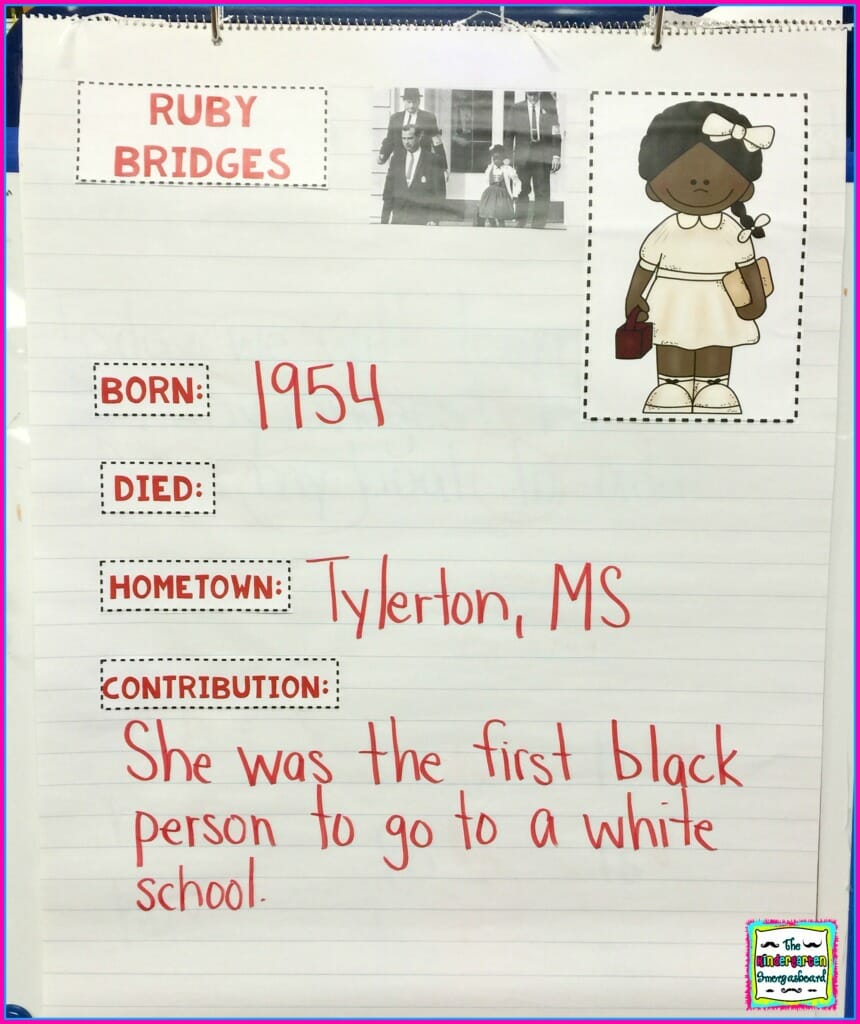 RUBY
BRIDGES
BORN: 1954
DIED:
HOMETOWN: Tylerton, MS
CONTRIBUTION:
She was the first black
person to go to a white
school.
The
Kindergarten
Smorgasboard